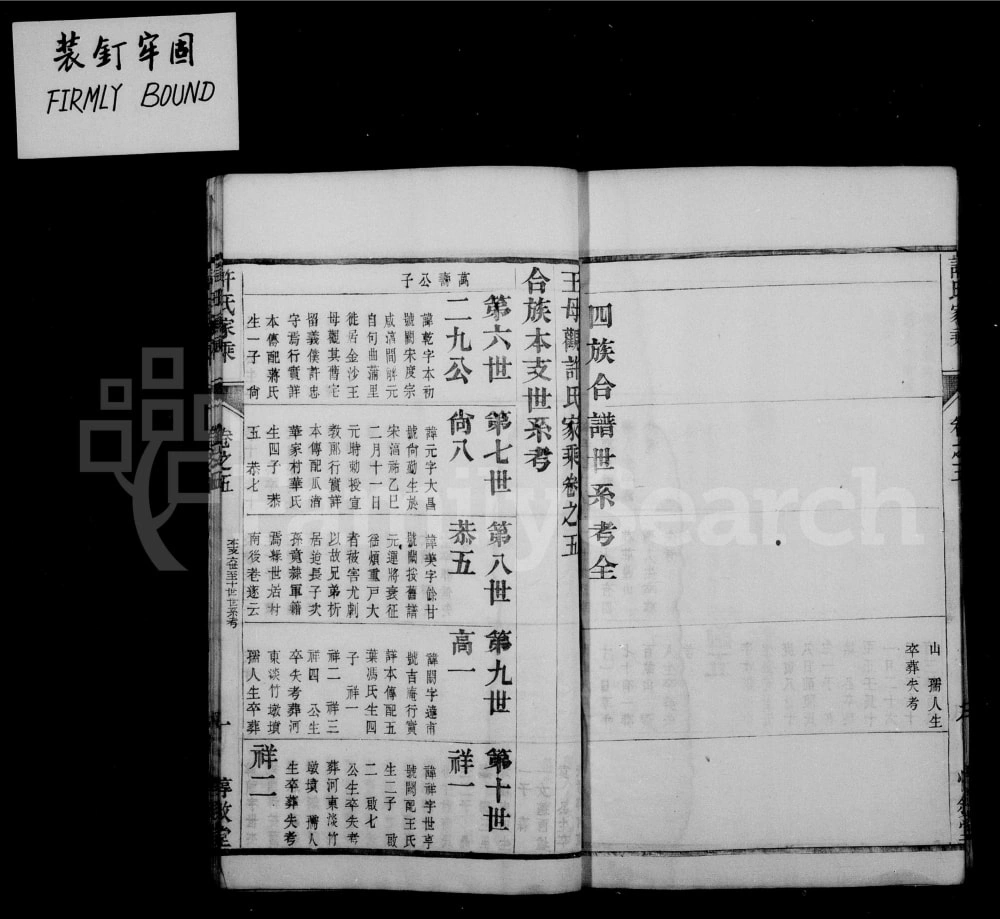 装钉牢固
FIRMLY BOUND
山 孺人生
卒葬失考
四族合譜世系考全
王母觀許氏家乘卷之五
合族本支世系考
第六世
第七世
第八世
第九世
第十世
萬壽公子
二九公
諱乾字本初
號闕宋度宗
咸淳間解元
自句曲蒲里
徙居金沙王
母觀其舊宅
留義僕許忠
守焉行實詳
本傳配蔣氏
生一子 尙
尙八
諱元字大昌
號尙勤生於
宋淳祐乙巳
二月十一日
元時勅授宣
教郎行實詳
本傳配瓜渚
華家村華氏
生四子 恭
五 恭七
恭五
諱美字餘甘
號闕按舊譜
元運將衰征
徭煩重戸大
者被害尤劇
以故兄弟析
居迨長子次
孫竟隸軍籍
焉無世居村
南後老逐云
高一
諱闕字遠市
號吉庵行實
詳本傳配五
葉馮氏生四
子 祥一
祥二 祥三
祥四 公生
卒失考葬河
東淡竹墩墳
孺人生卒葬
祥一
諱祥字世亨
號闕配王氏
生二子 啟
二 啟七
公生卒失考
葬河東淡竹
墩墳 孺人
生卒葬失考
祥二
許氏家乘
卷之五
一
敦堂
FamilySearch